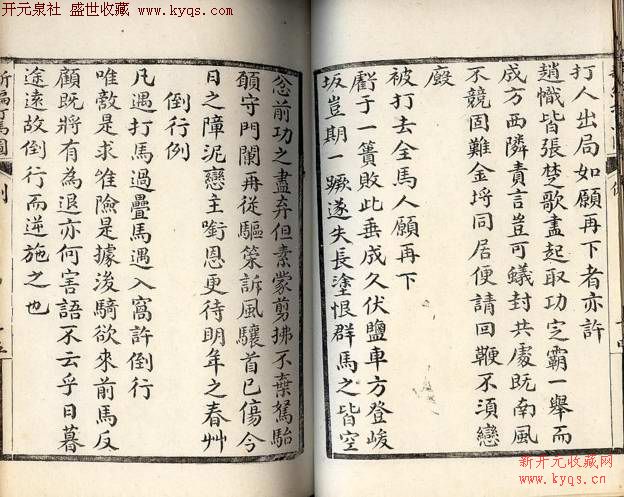 开元泉社 盛世收藏
www.kyqs.com
打人出局如願再下者亦許
趙幟皆張楚歌盡起取功定霸一舉而
成方西隣責言豈可蟻封共處既南風
不競固難金埒同居便請回鞭不須戀
廄
被打去全馬人願再下
虧于一簣敗此垂成久伏鹽車方登峻
坂豈期一蹶遂失長塗恨群馬之皆空
忿前功之盡弃但素蒙剪拂不棄駑駘
願守門闌再從驅策訴風驤首已傷今
日之障泥戀主銜恩更待明年之春艸
倒行例
凡遇打馬過疊馬遇入窩許倒行
唯敵是求唯險是據後騎欲來前馬反
顧既將有為退亦何害語不云乎日暮
途遠故倒行而逆施之也
新編打馬圖
例
新开元收藏网
www.kyqs.cn